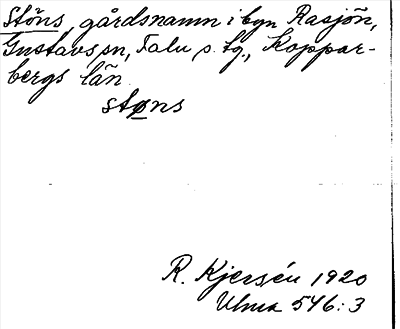 Stöns, gårdsnamn i byn Rasjön,
Gustavs sn, Falu s. tg., Koppar-
bergs län.
støns
R. Kjersén 1920
Ulma 546:3